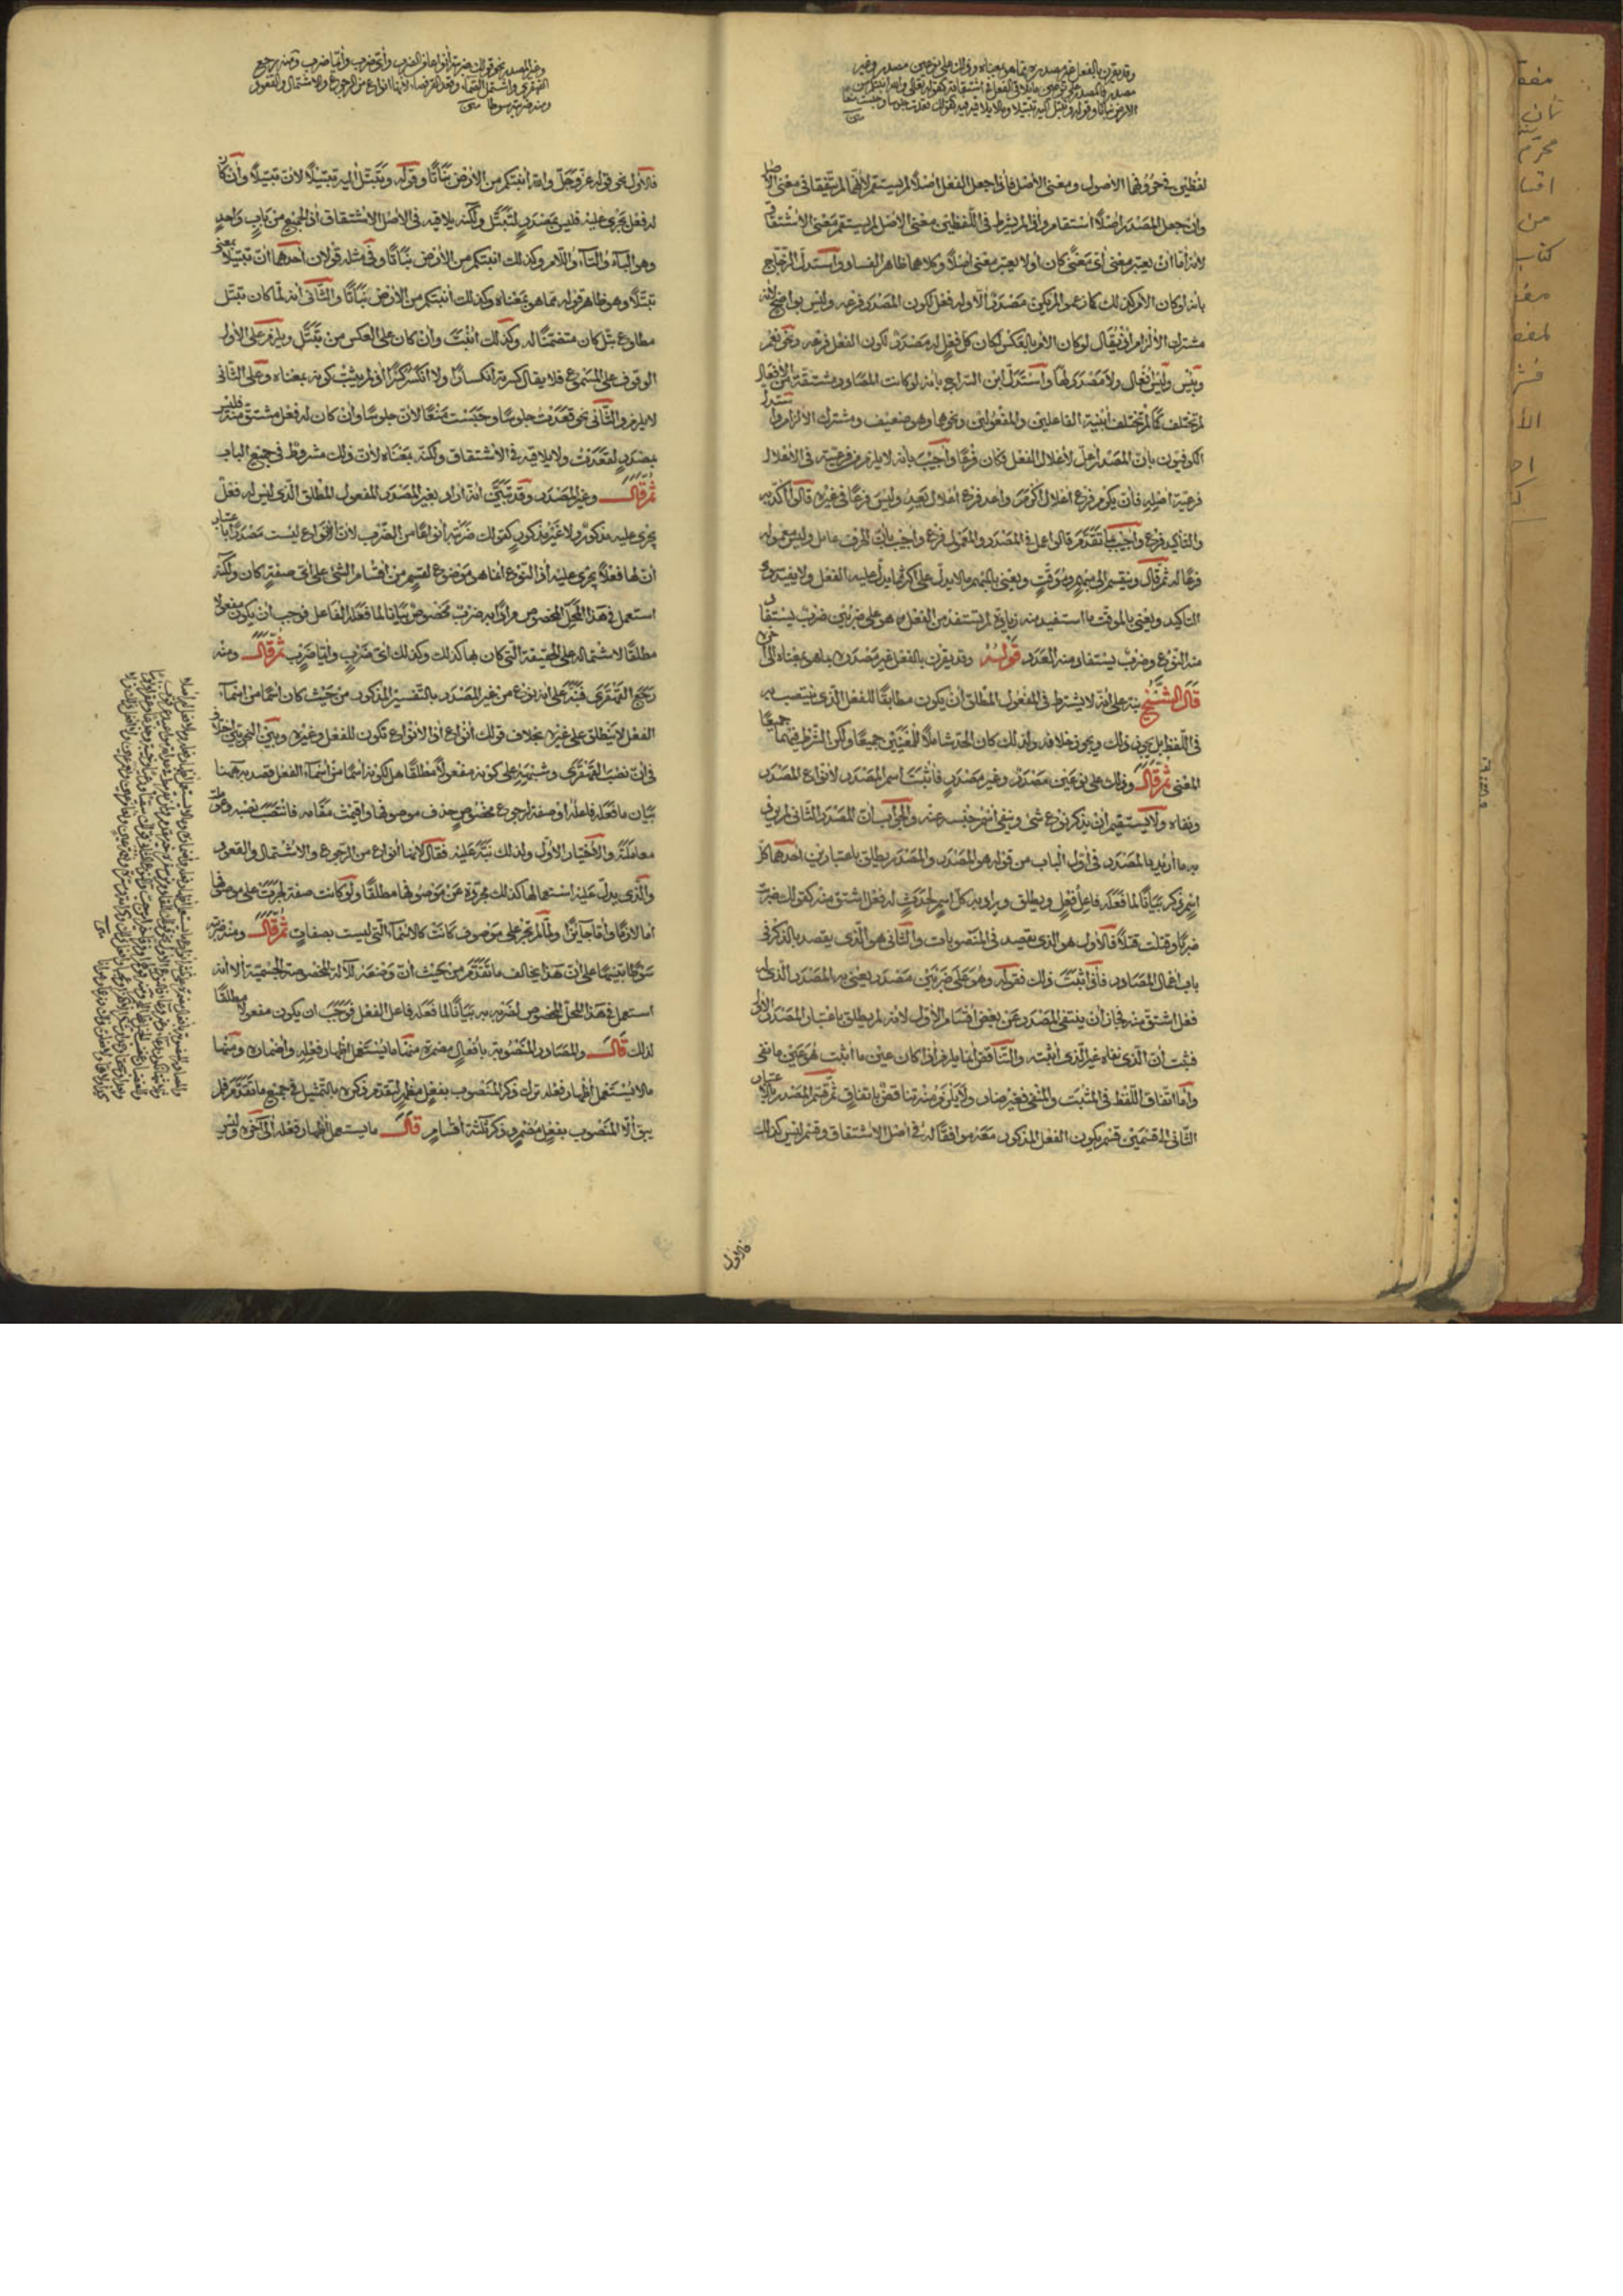 وقد يقرن بالفعل غير مصدره مما هو بمعناه وذلك على نوعين مصدر وغير
مصدر فالمصدر على نوعين ما يلاقي الفعل في اشتقاقه كقوله تعالى والله أنبتكم من
الأرض نباتا وقوله وتبتل إليه تبتيلا وما لا يلاقيه فيه كقولك قعدت جلوسا وحبست منعا
متن
لفظين في حروفهما الأصول ومعنى الأصل فإذا جعل الفعل أصلا لم يستقم لأنهما لم يتفقا في معنى الأصل
وإن جعل المصدر أصلا استقام وإذا لم يشترط في اللفظين معنى الأصل لم يستقم معنى الاشتقاق
لأنه إما أن يعتبر معنى أي معنى كان أو لا يعتبر معنى أصلا وكلاهما ظاهر الفساد واستدل الزجاج
بأنه لو كان الأمر كذلك كما زعموا لم يكن مصدر إلا وله فعل لكون المصدر فرعه وليس بواضح لأنه
مشترك الإلزام إذ يقال لو كان الأمر بالعكس لكان كل فعل له مصدر لكون الفعل فرعه ونحو نعم
وبئس وليس أفعال ولا مصدر لها واستدل ابن السراج بأنه لو كانت المصادر مشتقة من الأفعال
لم تختلف كما لم تختلف أبنية الفاعلين والمفعولين ونحوها وهو ضعيف ومشترك الإلزام واستدل
الكوفيون بأن المصدر أعل لإعلال الفعل فكان فرعا وأجيب بأنه لا يلزم من فرعيته في الإعلال
فرعية أصليه فإن يكرم فرع إعلال أكرم وأعد فرع إعلال نعيد وليس فرعا في غيره قالوا أكد به
والتأكيد فرع وأجيب بما تقدم قالوا عمل في المصدر والمعمول فرع وأجيب بأن الحرف عامل وليس معموله
فرعا له ثم قال وينقسم إلى مبهم وموقت ويعني بالمبهم ما لا يدل على أكثر مما يدل عليه الفعل ولا يفيد سوى
التأكيد ويعني بالموقت ما استفيد منه زيادة لم تستفد من الفعل وهو على ضربين ضرب يستفاد
منه النوع وضرب يستفاد منه العدد قوله وقد يقرن بالفعل غير مصدره مما هو بمعناه إلى آخره
قال الشيخ نبه على أنه لا يشترط في المفعول المطلق أن يكون مطابقا للفعل الذي ينتصب به
في اللفظ بل يجوز ذلك ويجوز خلافه ولذلك كان الحد شاملا للمعنيين جميعا ولكن الشرط فيهما جميعا
المعنى ثم قال وذلك على نوعين مصدر وغير مصدر فأثبت اسم المصدر لأنواع المصدر
ونفاه ولا يستقيم أن يذكر نوع شيء وينفي اسم جنسه عنه والجواب أن المصدر الثاني لم يرد
به ما أريد بالمصدر في أول الباب من قوله هو المصدر والمصدر يطلق باعتبارين أحدهما كل
اسم ذكر بيانا لما فعله فاعل فعل ويطلق ويراد به كل اسم لحدث له فعل اشتق منه كقولك ضربت
ضربا وقتلت قتلا فالأول هو الذي يقصد في المنصوبات والثاني هو الذي يقصد بالذكر في
باب إعمال المصادر فإذا ثبت ذلك فقوله وهو على ضربين مصدر يعني به المصدر الذي له
فعل اشتق منه فجاز أن ينتفي المصدر عن بعض أقسام الأول لأنه لم يطلق باعتبار المصدر الأول
فثبت أن الذي نفاه غير الذي أثبته والتناقض إنما يلزم إذا كان عين ما أثبت هو عين ما نفي
وأما اتفاق اللفظ في المثبت والمنفي فغير ضار ولا يلزم منه تناقض باتفاق ثم قسم المصدر باعتبار
الثاني إلى قسمين قسم يكون الفعل المذكور معه موافقا له في أصل الاشتقاق وقسم ليس كذلك
فالأول
وغير المصدر نحو قولك ضربته أنواعا من الضرب وأي ضرب وأيما ضرب ومنه رجع
القهقرى واشتمل الصماء وقعد القرفصاء لأنها أنواع من الرجوع والاشتمال والقعود
ومنه ضربته سوطا متن
فالأول نحو قوله عز وجل والله أنبتكم من الأرض نباتا وقوله وتبتل إليه تبتيلا لأن تبتيلا وإن كان
له فعل يجري عليه فليس بمصدر لتبتل ولكنه يلاقيه في الأصل الاشتقاق إذ الجميع من باب واحد
وهو الباء والتاء واللام وكذلك أنبتكم من الأرض نباتا وفي مثله قولان أحدهما أن تبتيلا بمعنى
تبتلا وهو ظاهر قوله مما هو بمعناه وكذلك أنبتكم من الأرض نباتا والثاني أنه لما كان تبتل
مطاوع بتل كان متضمنا له وكذلك أنبت وإن كان على العكس من تبتل ويلزم على الأول
الوقوف على المسموع فلا يقال كسرته انكسارا ولا انكسر كسرا إذ لم يثبت كونه بمعناه وعلى الثاني
لا يلزم والثاني نحو قعدت جلوسا وحبست منعا لأن جلوسا وإن كان له فعل مشتق منه فليس
بمصدر لقعدت ولا يلاقيه في الاشتقاق ولكنه بمعناه لأن ذلك مشروط في جميع الباب
ثم قال وغير المصدر وقد تبين أنه أراد بغير المصدر المفعول المطلق الذي ليس له فعل
يجري عليه مذكور ولا غير مذكور كقولك ضربته أنواعا من الضرب لأن الأنواع ليست مصدرا باعتبار
أن لها فعلا يجري عليه إذ النوع إنما هو موضوع لقسم من أقسام الشيء على أي صفة كان ولكنه
استعمل في هذا المحل المخصوص مرادا به ضرب مخصوص بيانا لما فعله الفاعل فوجب أن يكون مفعولا
مطلقا لاشتماله على الحقيقة التي كان بها كذلك وكذلك أي ضرب وأيما ضرب ثم قال ومنه
رجع القهقرى فنبه على أنه نوع من غير المصدر بالتفسير المذكور من حيث كان اسما من أسماء
الفعل لا ينطلق على غيره بخلاف قولك أنواع إذ الأنواع تكون للفعل وغيره وبين النحويين خلاف
في أن نصب القهقرى وشبهه على كونه مفعولا مطلقا هل لكونه اسما من أسماء الفعل قصد به ههنا
بيان ما فعله فاعله أو صفة لرجوع مخصوص حذف موصوفها وأقيمت مقامه فانتصب نصبه وعومل
معاملته والاختيار الأول ولذلك نبه عليه فقال لأنها أنواع من الرجوع والاشتمال والقعود
والذي يدل عليه استعمالها كذلك مجردة عن موصوفها مطلقا ولو كانت صفة لجرت على موصوفها
إما لازما وإما جائزا ولما لم تجر على موصوف كانت كالأسماء التي ليست بصفات ثم قال ومنه ضربته
سوطا تنبيها على أن هذا يخالف ما تقدم من حيث أن وضعه للآلة المخصوصة الجسمية إلا أنه
استعمل في هذا المحل المخصوص لضربه به بيانا لما فعله فاعل الفعل فوجب أن يكون مفعولا مطلقا
لذلك قال والمصادر المنصوبة بأفعال مضمرة منها ما يستعمل إظهار فعله وإضماره ومنها
ما لا يستعمل إظهار فعله ترك ذكر المنصوب بفعل مظهر لتقدم ذكره بالتمثيل في جميع ما تقدم فلم
يبق إلا المنصوب بفعل مضمر وذكر ثلثة أقسام قال ما يستعمل إظهار فعله إلى آخره وليس
كتاب